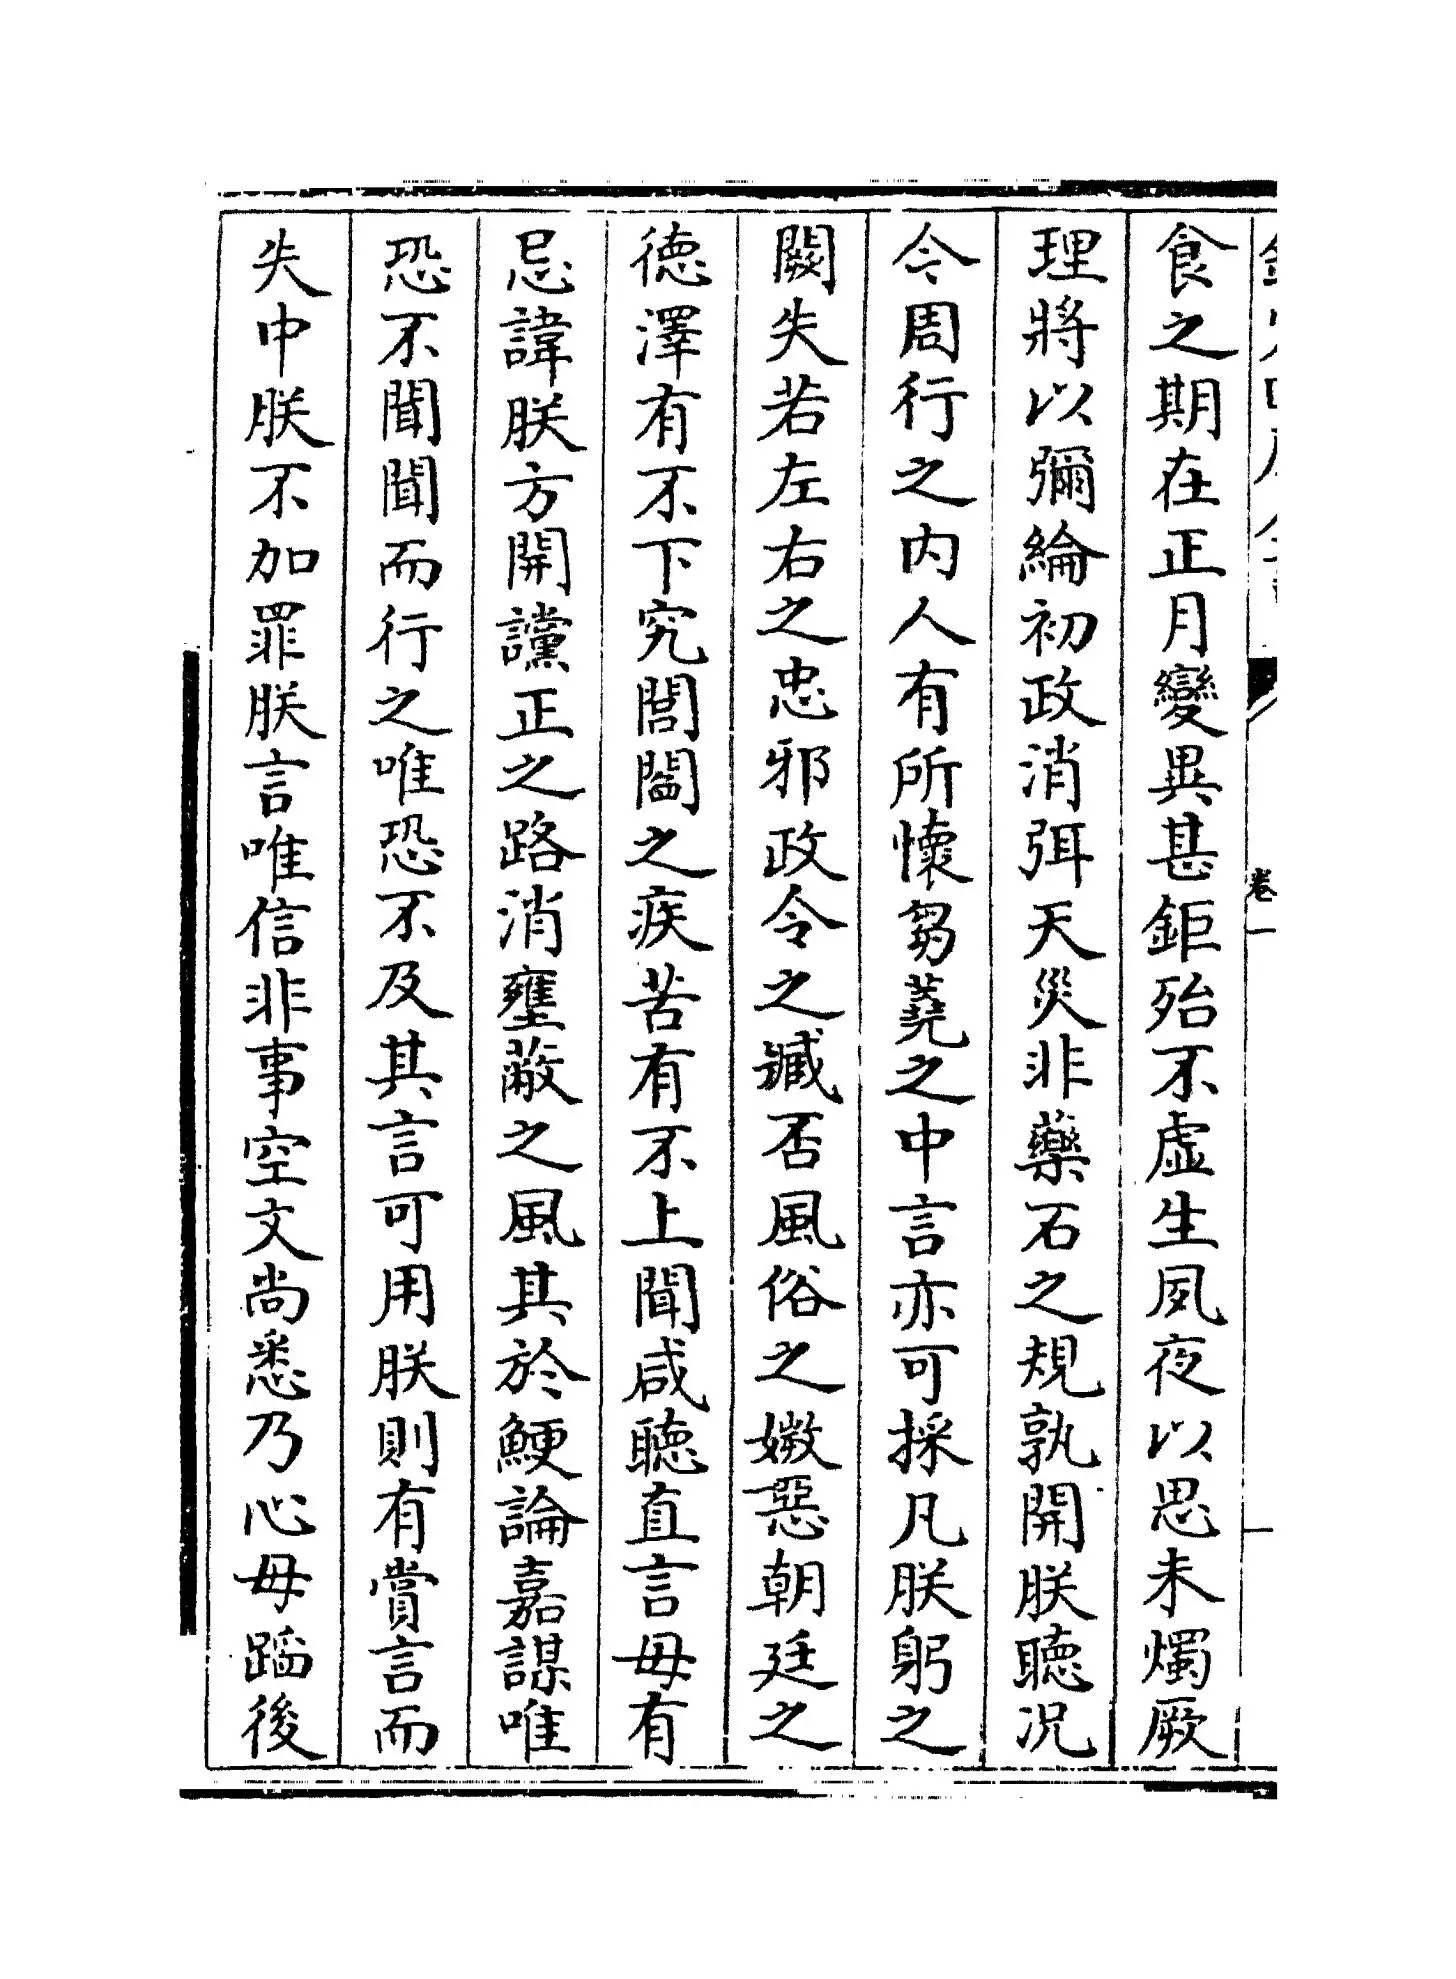 食之期在正月變異甚鉅殆不虛生夙夜以思未燭厥
理將以彌綸初政消弭天災非藥石之規孰開朕聽況
今周行之內人有所懷芻蕘之中言亦可採凡朕躬之
闕失若左右之忠邪政令之臧否風俗之媺惡朝廷之
德澤有不下究閭閻之疾苦有不上聞咸聽直言毋有
忌諱朕方開讜正之路消壅蔽之風其於鯁論嘉謀唯
恐不聞聞而行之唯恐不及其言可用朕則有賞言而
失中朕不加罪朕言唯信非事空文尚悉乃心毋蹈後
卷一